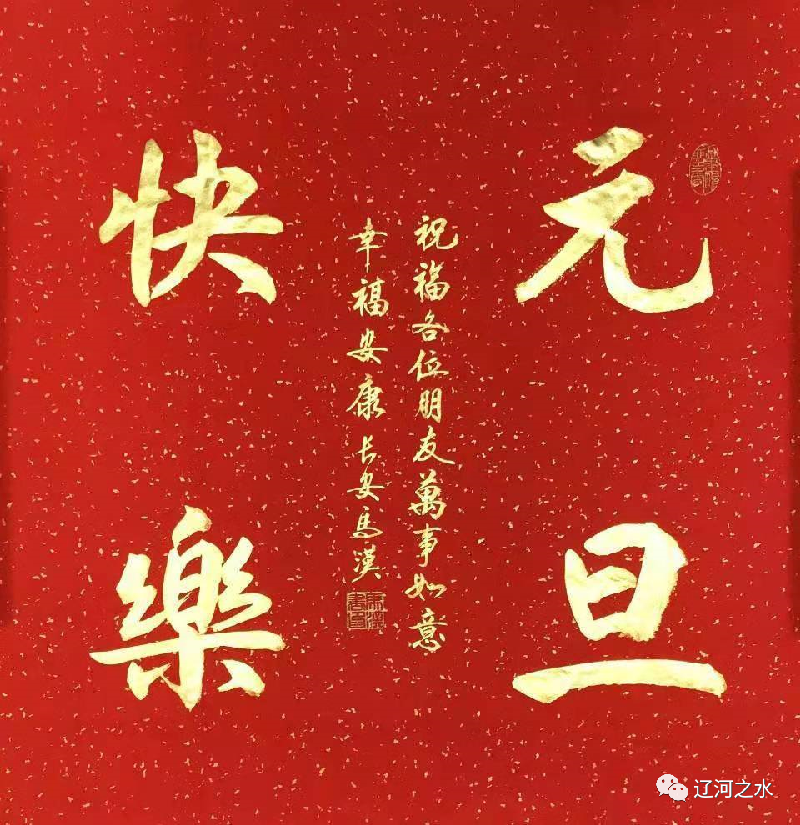 元旦
快樂
祝福各位朋友萬事如意
幸福安康长安馬漢
辽河之水